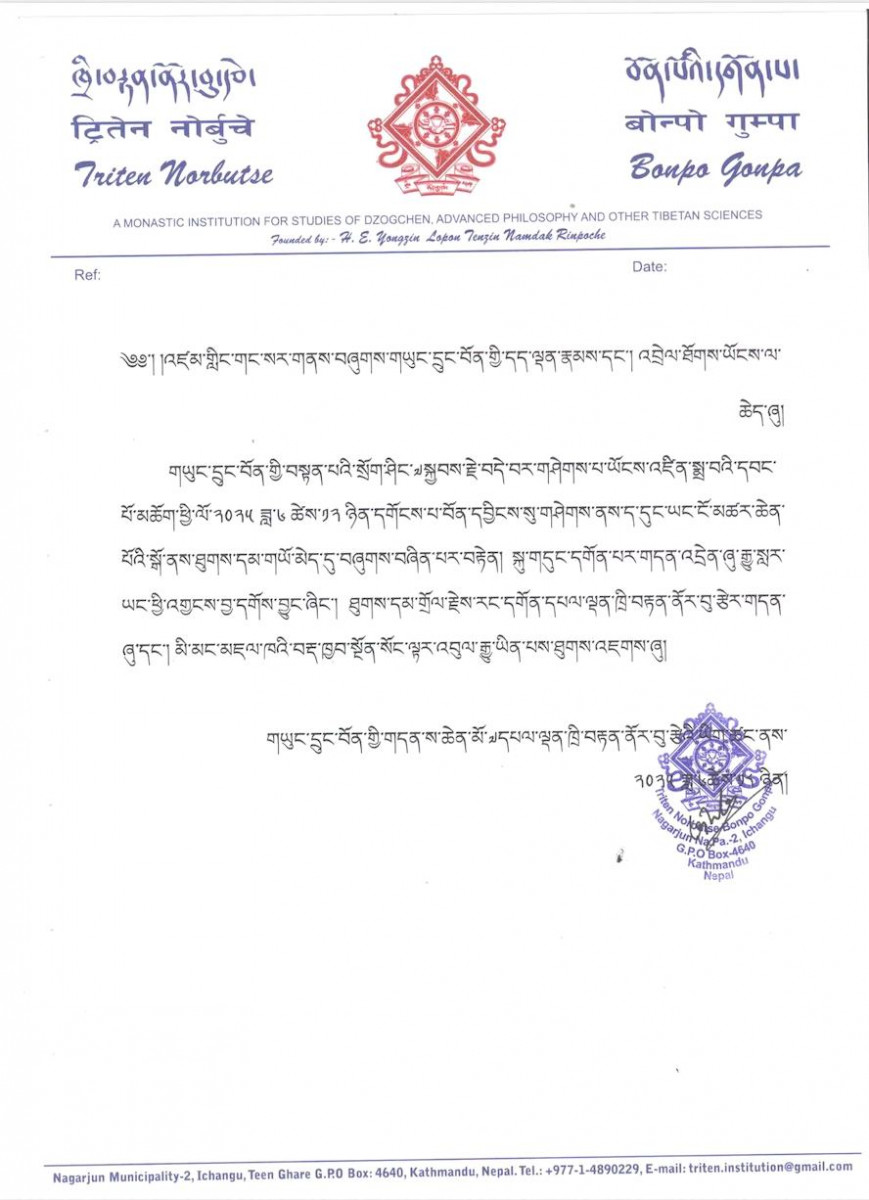 ཁྲི་བརྟན་ནོར་བུ་རྩེ།
བོན་པོའི་དགོན་པ།
ट्रितेन नोर्बुचे
बोन्पो गुम्पा
Triten Norbutse
Bonpo Gonpa
A MONASTIC INSTITUTION FOR STUDIES OF DZOGCHEN, ADVANCED PHILOSOPHY AND OTHER TIBETAN SCIENCES
Founded by: - H. E. Yongzin Lopon Tenzin Namdak Rinpoche
Ref:
Date:
༄༅། །འཛམ་གླིང་གང་སར་གནས་བཞུགས་གཡུང་དྲུང་བོན་གྱི་དད་ལྡན་རྣམས་དང་། འབྲེལ་ཐོགས་ཡོངས་ལ་
ཆེད་ཞུ།
གཡུང་དྲུང་བོན་གྱི་བསྟན་པའི་སྲོག་ཤིང་༧སྐྱབས་རྗེ་བདེ་བར་གཤེགས་པ་ཡོངས་འཛིན་སྨྲ་བའི་དབང་
པོ་མཆོག་ཕྱི་ལོ་༢༠༢༥ ཟླ་༦ ཚེས་༡༢ ཉིན་དགོངས་པ་བོན་དབྱིངས་སུ་གཤེགས་ནས་ད་དུང་ཡང་ངོ་མཚར་ཆེན་
པོའི་སྒོ་ནས་ཐུགས་དམ་གཡོ་མེད་དུ་བཞུགས་བཞིན་པར་བརྟེན། སྐུ་གདུང་དགོན་པར་གདན་འདྲེན་ཞུ་རྒྱུ་སླར་
ཡང་ཕྱི་འགྱངས་བྱ་དགོས་བྱུང་ཞིང་། ཐུགས་དམ་གྲོལ་རྗེས་རང་དགོན་དཔལ་ལྡན་ཁྲི་བརྟན་ནོར་བུ་རྩེར་གདན་
ཞུ་དང་། མི་མང་མཇལ་ཁའི་བརྡ་ཁྱབ་སྔོན་སོང་ལྟར་འབུལ་རྒྱུ་ཡིན་པས་ཐུགས་འཇགས་ཞུ།
གཡུང་དྲུང་བོན་གྱི་གདན་ས་ཆེན་མོ་༧དཔལ་ལྡན་ཁྲི་བརྟན་ནོར་བུ་རྩེའི་ཡིག་ཚང་ནས་
༢༠༢༥ ཟླ་༦ ཚེས་ ཉིན།
Triten Norbutse Bonpo Gonpa
Nagarjun Na.Pa.-2, Ichangu
G.P.O Box-4640
Kathmandu
Nepal
Nagarjun Municipality-2, Ichangu, Teen Ghare G.P.O Box: 4640, Kathmandu, Nepal. Tel.: +977-1-4890229, E-mail: triten.institution@gmail.com